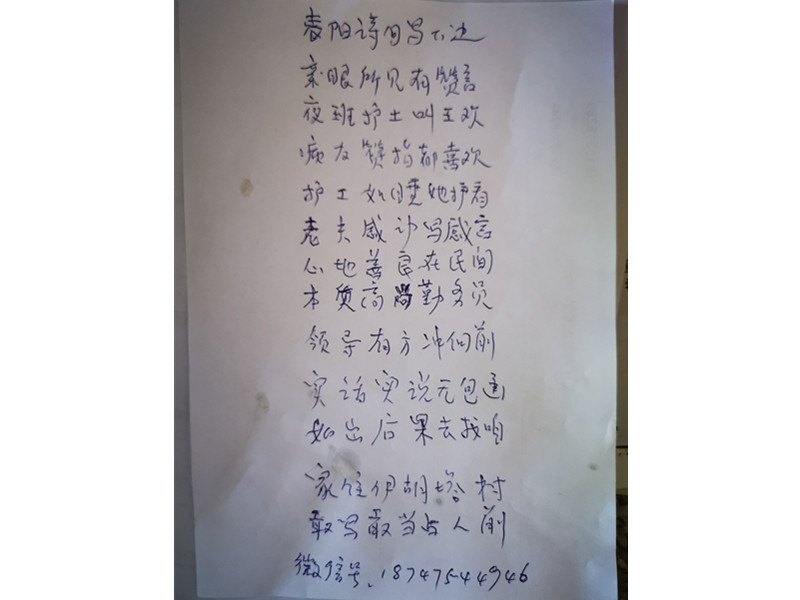 表阳诗句写不边
亲眼所见有赞言
夜班护士叫王欢
病友赞扬都喜欢
护士如姐她护看
老夫感动写感言
心地善良在民间
本质高尚勤务员
领导有方冲向前
实话实说无包函
如出后果去找咱
家住伊胡塔村
敢写敢当占人前
微信号、18747544946